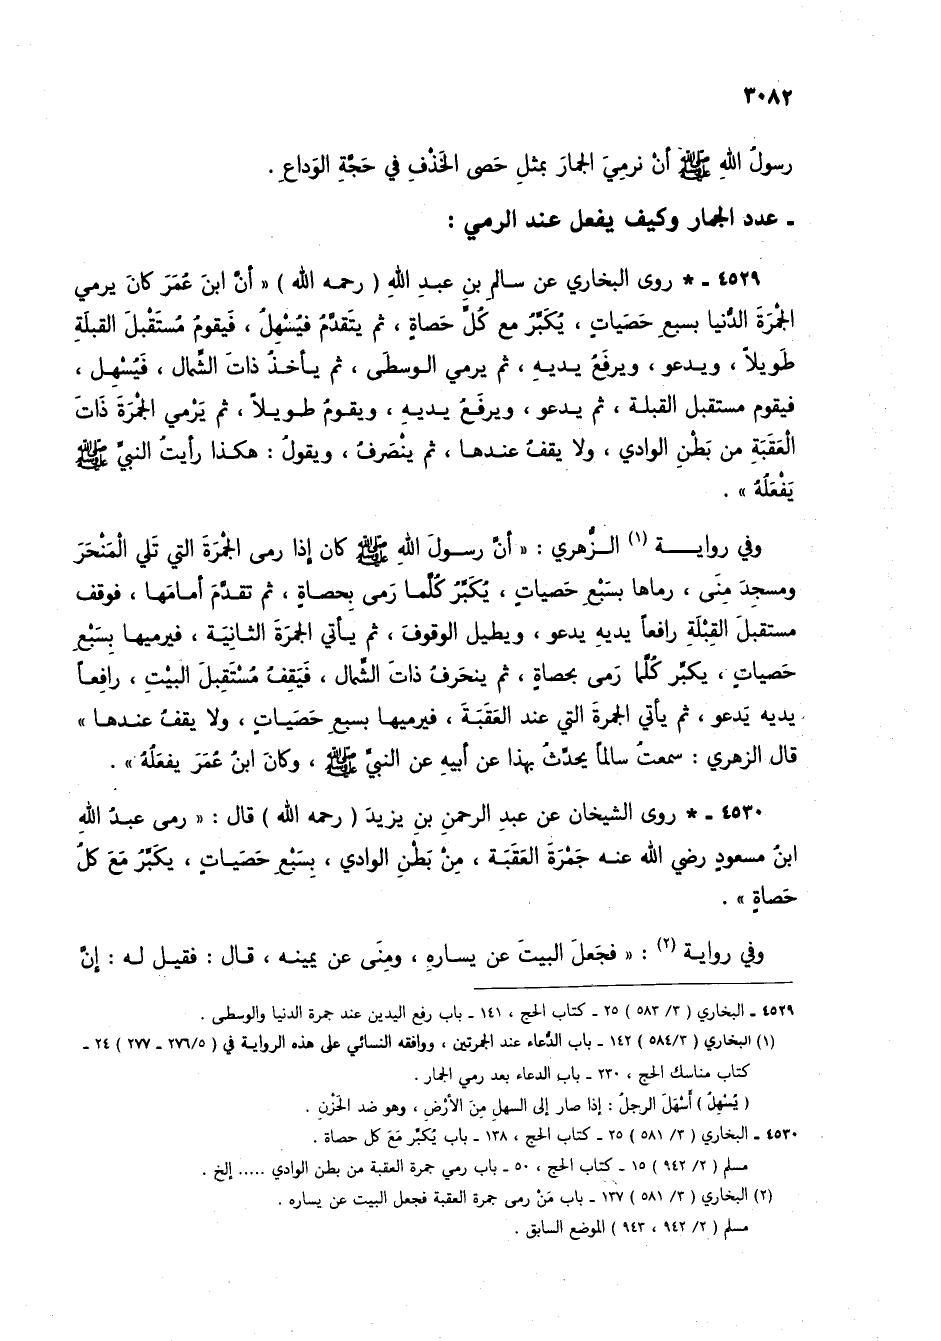 ٣٠٨٢
رسولُ اللهِ ﷺ أنْ نرمِيَ الجمارَ بمثلِ حَصى الخَذْفِ في حَجَّةِ الوَداعِ .
ـ عدد الجمار وكيف يفعل عند الرمي :
٤٥٢٩ ـ * روى البخاري عن سالمِ بنِ عبدِ اللهِ ( رحمه الله ) « أنَّ ابنَ عُمَرَ كانَ يرمي
الجَمْرَةَ الدُّنيا بسبعِ حَصَيَاتٍ ، يُكَبِّرُ مع كُلِّ حَصاةٍ ، ثم يَتَقدَّمُ فيُسْهِلُ ، فَيقومُ مُسْتَقْبِلَ القبلَةِ
طَويلاً ، ويدعو ، ويرفَعُ يديهِ ، ثم يرمي الوسطَى ، ثم يأخذُ ذاتَ الشِّمال ، فَيُسْهِل ،
فيقوم مستقبل القبلة ، ثم يدعو ، ويرفَعُ يديهِ ، ويقومُ طويلاً ، ثم يَرْمي الجَمْرَةَ ذَاتَ
الْعَقَبَةِ من بَطْنِ الوادي ، ولا يقفُ عندها ، ثم ينْصَرفُ ، ويقولُ : هكذا رأيتُ النبيَّ ﷺ
يَفْعَلُهُ » .
وفي رواية (١) الزُّهري : « أنَّ رسولَ اللهِ ﷺ كان إذا رمى الجَمْرَةَ التي تَلي الْمَنْحَرَ
ومسجِدَ مِنًى ، رماها بسَبْعِ حَصياتٍ ، يُكَبِّرُ كُلَّما رَمى بِحصاةٍ ، ثم تقدَّمَ أمامَها ، فوقف
مستقبلَ القِبْلَةِ رافعاً يديهِ يدعو ، ويطيل الوقوفَ ، ثم يأتي الجمرَةَ الثانيَة ، فيرميها بسَبْعِ
حَصياتٍ ، يكبِّر كُلَّما رَمى بحصاةٍ ، ثم ينحَرِفُ ذاتَ الشِّمال ، فَيَقِفُ مُسْتَقبِلَ البيْتِ ، رافعاً
يديه يَدعو ، ثم يأتي الجمرةَ التي عند العَقَبَةَ ، فيرميها بسبعِ حَصَياتٍ ، ولا يقفُ عندها »
قال الزهري : سمعتُ سالماً يحدِّثُ بهذا عن أبيهِ عن النبيِّ ﷺ ، وكانَ ابنُ عُمَرَ يفعَلُهُ » .
٤٥٣٠ ـ * روى الشيخان عن عبدِ الرحمنِ بنِ يزيدَ ( رحمه الله ) قال : « رمى عبدُ اللهِ
ابنُ مسعودٍ رضي الله عنه جَمْرَةَ العَقَبَة ، مِنْ بَطْنِ الوادي ، بِسَبْعِ حَصَياتٍ ، يكَبِّرُ مَعَ كلِّ
حَصاةٍ » .
وفي رواية (٢) : « فجَعلَ البيتَ عن يسارِهِ ، ومِنًى عن يمينه ، قال : فقيل له : إنَّ
٤٥٢٩ ـ البخاري ( ٣/ ٥٨٣ ) ٢٥ ـ كتاب الحج ، ١٤١ ـ باب رفع اليدين عند جمرة الدنيا والوسطى .
(١) البخاري ( ٥٨٤/٣ ) ١٤٢ ـ باب الدُّعاء عند الجمرتين ، ووافقه النسائي على هذه الرواية في ( ٢٧٦/٥ ـ ٢٧٧ ) ٢٤ ـ
كتاب مناسك الحج ، ٢٣٠ ـ باب الدعاء بعد رمي الجمار .
( يُسْهِلُ ) أَسْهَلَ الرجلُ : إذا صار إلى السهلِ مِنَ الأرْضِ ، وهو ضد الحَزْنِ .
٤٥٣٠ ـ البخاري ( ٣/ ٥٨١ ) ٢٥ ـ كتاب الحج ، ١٣٨ ـ باب يُكَبِّر مَعَ كل حصاة .
مسلم ( ٢/ ٩٤٢ ) ١٥ ـ كتاب الحج ، ٥٠ ـ باب رمي جمرة العقبة من بطن الوادي ..... إلخ .
(٢) البخاري ( ٣/ ٥٨١ ) ١٣٧ ـ باب مَنْ رمى جمرة العقبة فجعل البيت عن يساره .
مسلم ( ٢/ ٩٤٢ ، ٩٤٣ ) الموضع السابق .